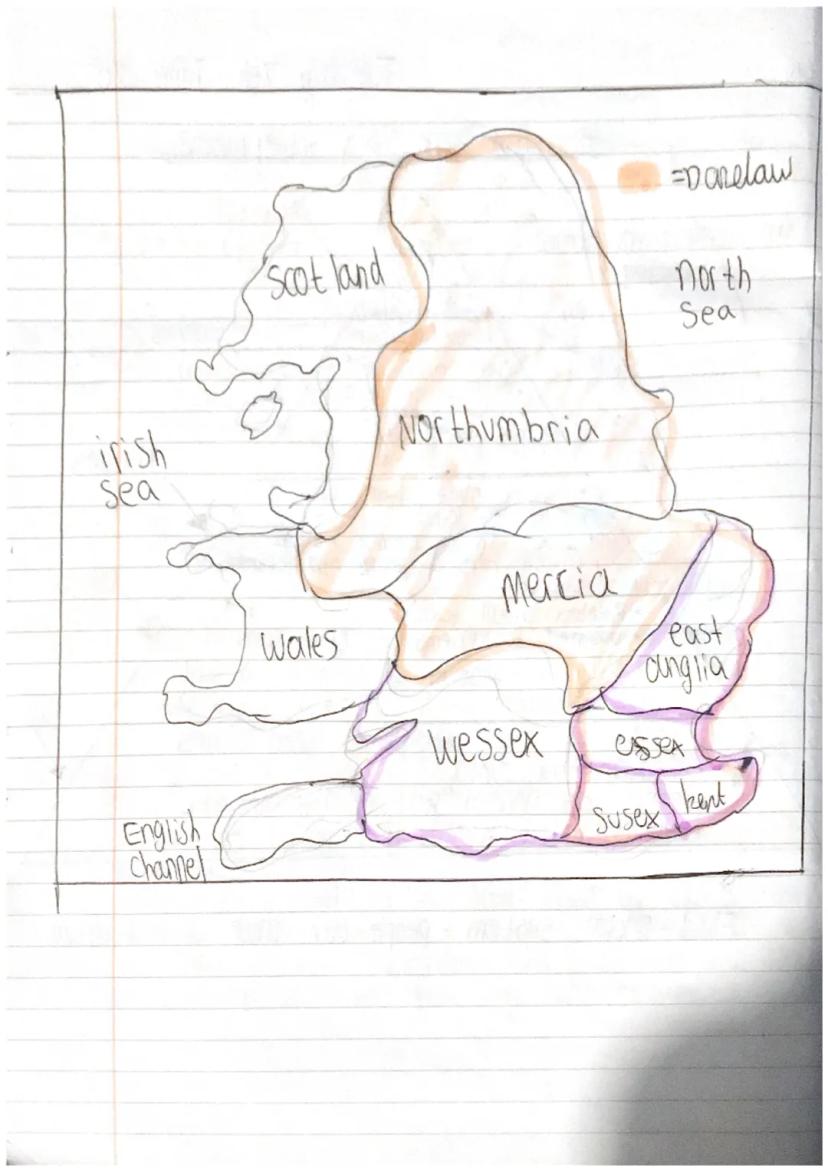 =Danelaw
Scotland
north
sea
Northumbria
irish
sea
Mercia
east
anglia
wales
wessex
essex
kent
susex
English
channel